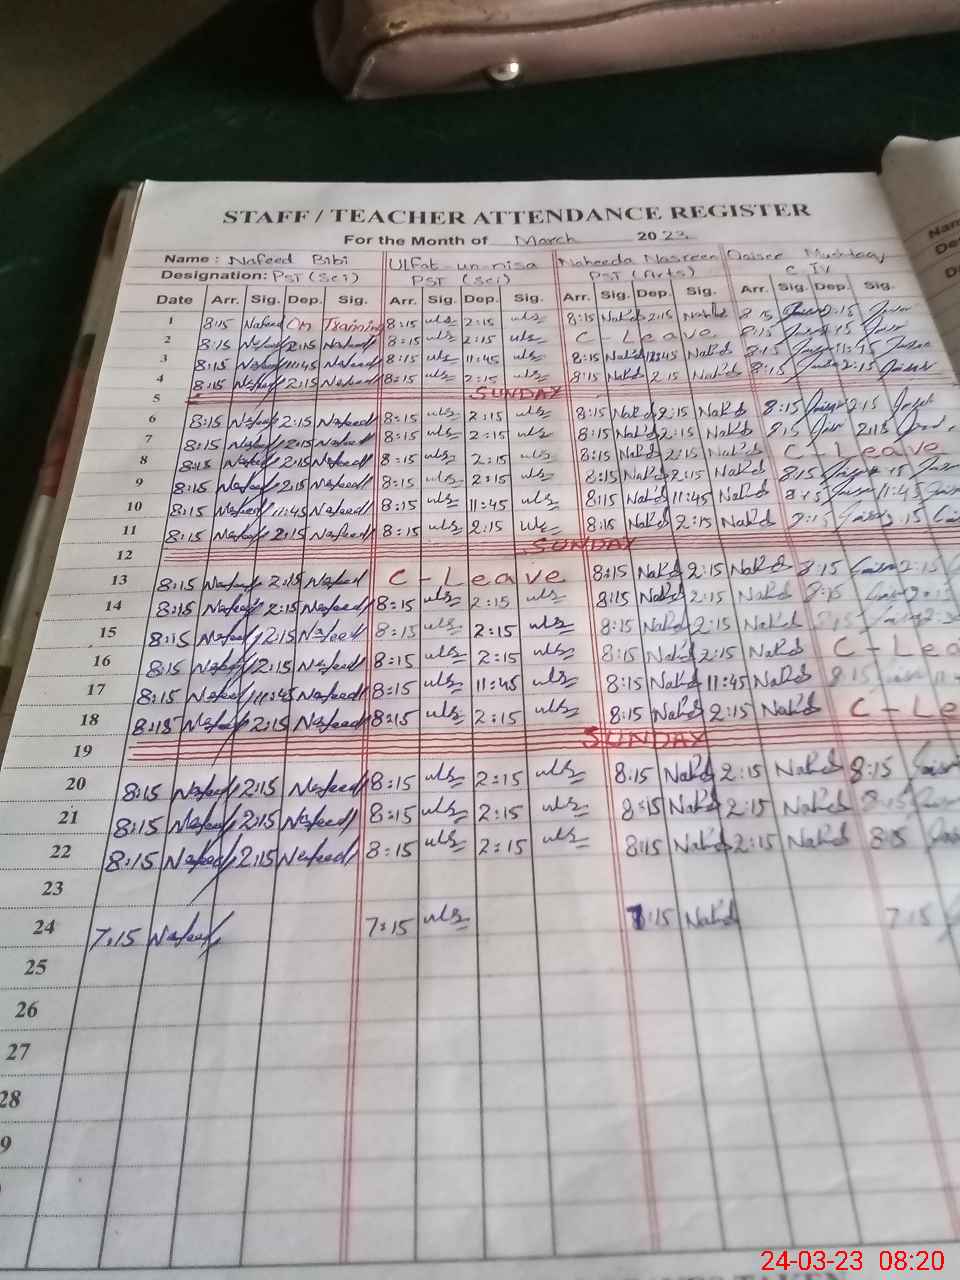 STAFF / TEACHER ATTENDANCE REGISTER
For the Month of March 2023
Name : Nafeed Bibi Ulfat-un-nisa Naheeda Nasreen Qaisar Mushtaq
Designation: PST (Sci) PST (Sci) PST (Arts) C IV
Date Arr. Sig. Dep. Sig. Arr. Sig. Dep. Sig. Arr. Sig. Dep. Sig. Arr. Sig. Dep. Sig.
1 8:15 Nafeed On Training 8:15 uls 2:15 uls 8:15 NaKd 2:15 NaKd 8:15 2:15
2 8:15 Nafeed 2:15 Nafeed 8:15 uls 2:15 uls C - Leave 8:15 2:15
3 8:15 Nafeed 11:45 Nafeed 8:15 uls 11:45 uls 8:15 NaKd 11:45 NaKd 8:15 11:45
4 8:15 Nafeed 2:15 Nafeed 8:15 uls 2:15 uls 8:15 NaKd 2:15 NaKd 8:15 2:15
5 SUNDAY
6 8:15 Nafeed 2:15 Nafeed 8:15 uls 2:15 uls 8:15 NaKd 2:15 NaKd 8:15 2:15
7 8:15 Nafeed 2:15 Nafeed 8:15 uls 2:15 uls 8:15 NaKd 2:15 NaKd 8:15 2:15
8 8:15 Nafeed 2:15 Nafeed 8:15 uls 2:15 uls 8:15 NaKd 2:15 NaKd C - Leave
9 8:15 Nafeed 2:15 Nafeed 8:15 uls 2:15 uls 8:15 NaKd 2:15 NaKd 8:15 2:15
10 8:15 Nafeed 11:45 Nafeed 8:15 uls 11:45 uls 8:15 NaKd 11:45 NaKd 8:15 11:45
11 8:15 Nafeed 2:15 Nafeed 8:15 uls 2:15 uls 8:15 NaKd 2:15 NaKd 8:15 2:15
12 SUNDAY
13 8:15 Nafeed 2:15 Nafeed C - Leave 8:15 NaKd 2:15 NaKd 8:15 2:15
14 8:15 Nafeed 2:15 Nafeed 8:15 uls 2:15 uls 8:15 NaKd 2:15 NaKd 8:15
15 8:15 Nafeed 2:15 Nafeed 8:15 uls 2:15 uls 8:15 NaKd 2:15 NaKd 8:15
16 8:15 Nafeed 2:15 Nafeed 8:15 uls 2:15 uls 8:15 NaKd 2:15 NaKd C - Lea
17 8:15 Nafeed 11:45 Nafeed 8:15 uls 11:45 uls 8:15 NaKd 11:45 NaKd 8:15
18 8:15 Nafeed 2:15 Nafeed 8:15 uls 2:15 uls 8:15 NaKd 2:15 NaKd C - Le
19 SUNDAY
20 8:15 Nafeed 2:15 Nafeed 8:15 uls 2:15 uls 8:15 NaKd 2:15 NaKd 8:15
21 8:15 Nafeed 2:15 Nafeed 8:15 uls 2:15 uls 8:15 NaKd 2:15 NaKd 8:15
22 8:15 Nafeed 2:15 Nafeed 8:15 uls 2:15 uls 8:15 NaKd 2:15 NaKd 8:15
23
24 7:15 Nafeed 7:15 uls 7:15 NaKd 7:15
25
26
27
28
9
24-03-23 08:20